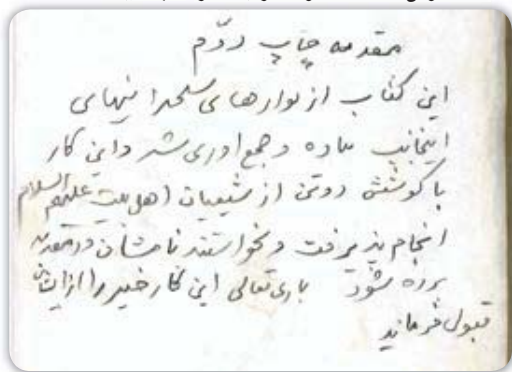 مقدمه چاپ دوّم
این کتاب از نوارهای سخنرانیهای
اینجانب پیاده و جمع اوری شد و این کار
با کوشش دو تن از شیعیان اهل بیت علیهم السلام
انجام پذیرفت و نخواستند نامشان در مقدمه
برده شود باری تعالی این کار خیر را از ایشان
قبول فرماید